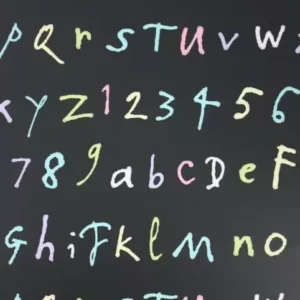 p Q r s T U v W
x y Z 1 2 3 4 5 6
7 8 9 a b c D e F
G h i J k l M n o
p Q r s T U v W